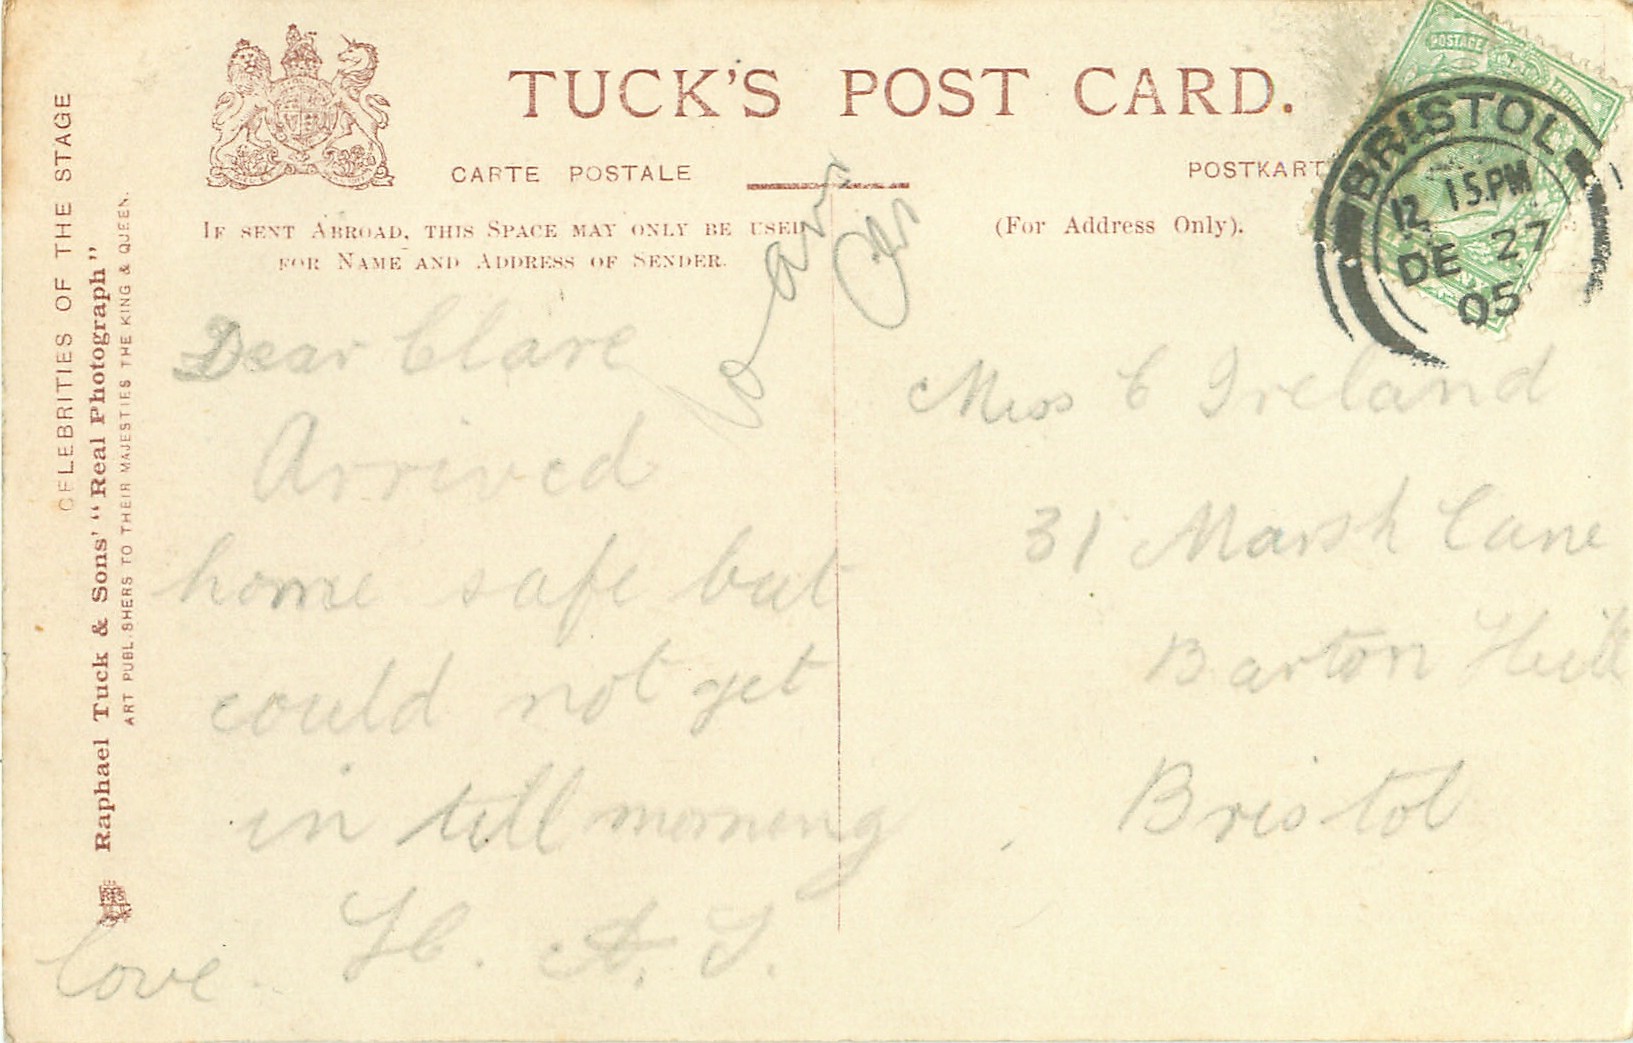 TUCK'S POST CARD.
CARTE POSTALE
POSTKART
IF SENT ABROAD, THIS SPACE MAY ONLY BE USED
FOR NAME AND ADDRESS OF SENDER.
(For Address Only).
CELEBRITIES OF THE STAGE
Raphael Tuck & Sons' "Real Photograph"
ART PUBLISHERS TO THEIR MAJESTIES THE KING & QUEEN.
POSTAGE
BRISTOL
12 15.PM
DE 27
05
Dear Clare
Arrived
home safe but
could not get
in till morning
love.
Miss C Ireland
31 Marsh Lane
Barton Hill
Bristol